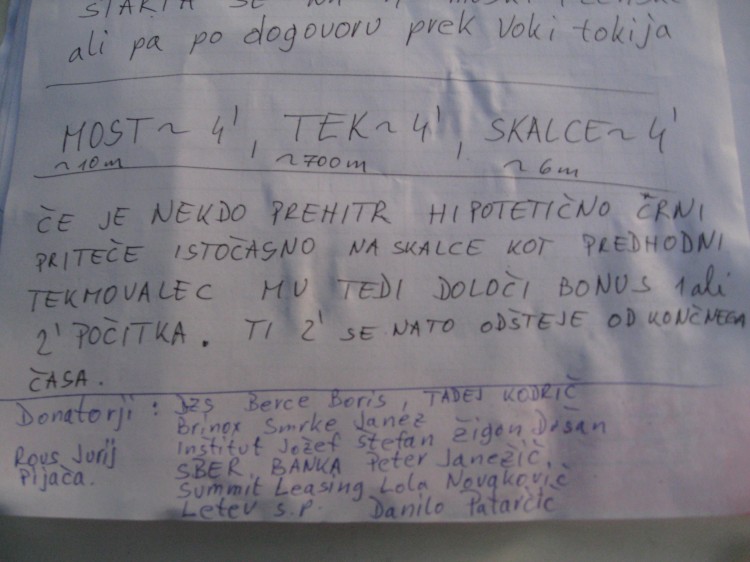 STARTA SE NA
ali pa po dogovoru prek Voki tokija
MOST ~ 4', TEK ~ 4', SKALCE ~ 4'
~10m ~700m ~6m
ČE JE NEKDO PREHITR HIPOTETIČNO ČRNI
PRITEČE ISTOČASNO NA SKALCE KOT PREDHODNI
TEKMOVALEC MU TEDI DOLOČI BONUS 1 ali
2' POČITKA. TI 2' SE NATO ODŠTEJE OD KONČNEGA
ČASA.
Donatorji: JZS Berce Boris, TADEJ KODRIČ
Brinox Smrke Janez Žigon Dušan
Inštitut Jožef Stefan
Rous Jurij SBER. BANKA Peter Janežič,
Pijača. Summit Leasing Lola Novakovič
Letev s.p. Danilo Patarčić